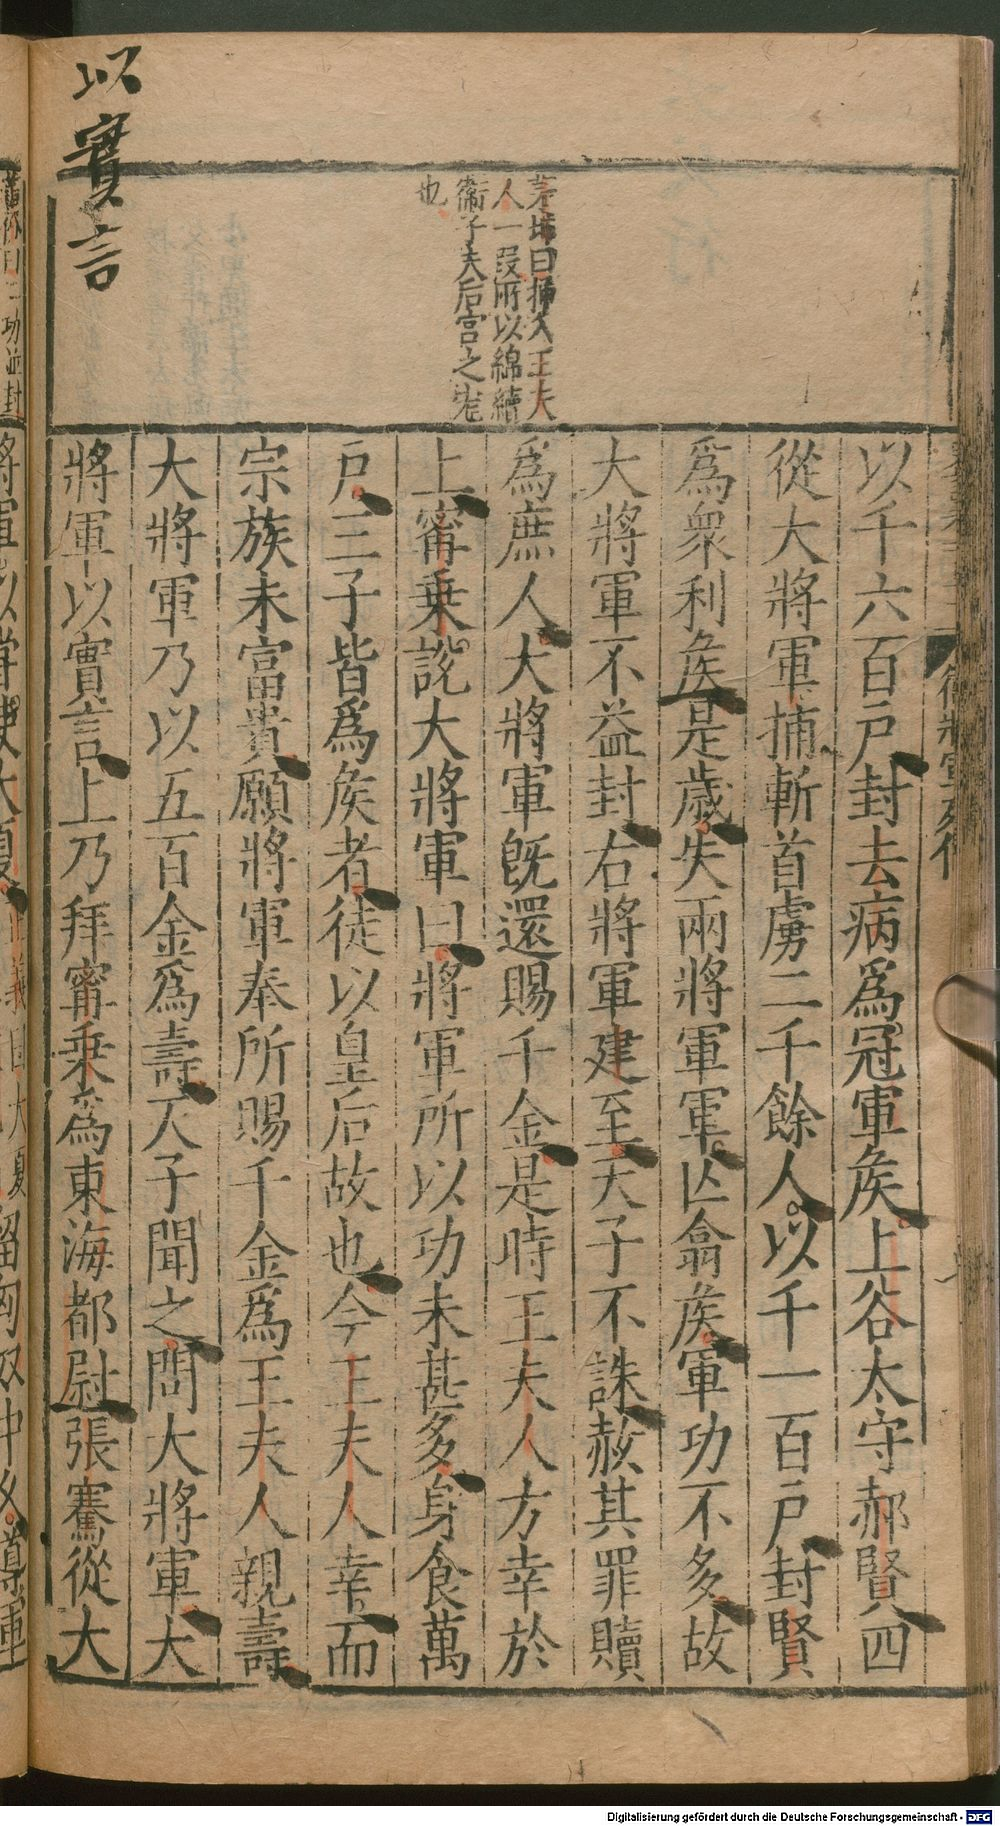 以實言
茅坤曰揷入王夫
人一叚所以綿續
衞子夫后宫之寵
也
以千六百戸封去病爲冠軍矦上谷太守郝賢四
從大將軍捕斬首虜二千餘人以千一百戸封賢
爲衆利矦是歳失兩將軍軍亾翕矦軍功不多故
大將軍不益封右將軍建至天子不誅赦其罪贖
爲庶人大將軍旣還賜千金是時王夫人方幸於
上甯乗說大將軍曰將軍所以功未甚多身食萬
戸三子皆爲矦者徒以皇后故也今王夫人幸而
宗族未富貴願將軍奉所賜千金爲王夫人親壽
大將軍乃以五百金爲壽天子聞之問大將軍大
將軍以實言上乃拜甯乗爲東海都尉張騫從大
Digitalisierung gefördert durch die Deutsche Forschungsgemeinschaft - DFG